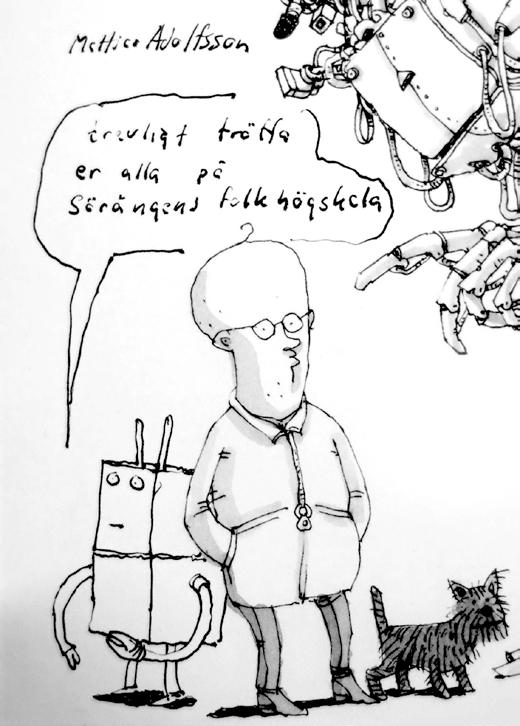 Mattias Adolfsson
trevligt träffa
er alla på
Sörängens folkhögskola